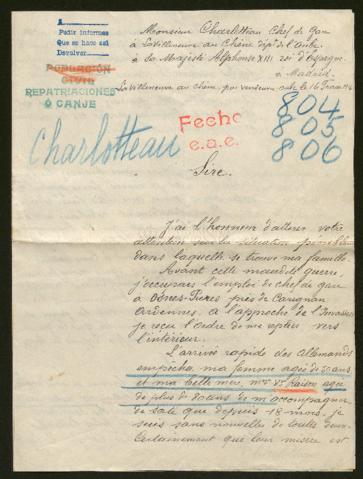 A
Pedir informes
Que se hace así
Devolver
POBLACIÓN
CIVIL
REPATRIACIONES
Ó CANJE
Monsieur Charlotteau Chef de Gare
à La Villeneuve au Chêne dépt de l'Aube
à Sa Majesté Alphonse XIII roi d'Espagne
à Madrid
La Villeneuve au chêne, par Vendeuvre Aube le 16
804
805
806
Fecho
e.a.e.
Charlotteau
Sire,
J'ai l'honneur d'attirer votre
attention sur la situation pénible
dans laquelle se trouve ma famille.
Avant cette maudite guerre,
j'occupais l'emploi de chef de gare
à Osnes-Pures près de Carignan
Ardennes, à l'approche de l'invasion
je reçu l'ordre de me replier vers
l'intérieur.
L'arrivée rapide des Allemands
empêcha ma femme agée de 50 ans
et ma belle mère, Mme Vve Raison agée
de plus de 80 ans de m'accompagner
de sorte que depuis 18 mois, je
suis sans nouvelles de toutes deux
Certainement que leur misère est